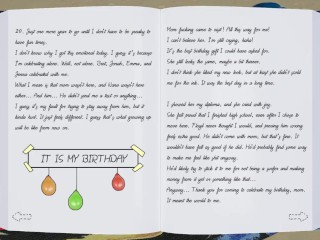 20. Just one more year to go until I don't have to be sneaky to
have fun haha.
I don't know why I got this emotional today. I guess it's because
I'm celebrating alone. Well, not alone. Dad, Jonah, Emma, and
Jenna celebrated with me.
What I mean is that mom wasn't here, and Klaus wasn't here
either... And him... He didn't send me a text or anything...
I guess it's my fault for trying to stay away from him, but it
kinda hurt. I just feel different. I guess that's what growing up
will be like from now on.
IT IS MY BIRTHDAY
Mom fucking came to visit! All the way for me!
I can't believe her. I'm still crying, haha!
It's the best birthday gift I could have asked for.
She still looks the same, maybe a bit thinner.
I don't think she liked my new look, but at least she didn't scold
me for the ink. It was the best day in a long time.
I showed her my diploma, and she cried with joy.
She felt proud that I finished high school, even after I chose to
move here. Floyd never thought I would, and proving him wrong
feels extra good. He didn't come with mom, but that's fine. It
wouldn't have felt as good if he did. He'd probably find some way
to make me feel like shit anyway.
He'd likely try to pick it to me for not being a surfer and making
money from it yet or something like that...
Anyway... Thank you for coming to celebrate my birthday, mom.
It meant the world to me.